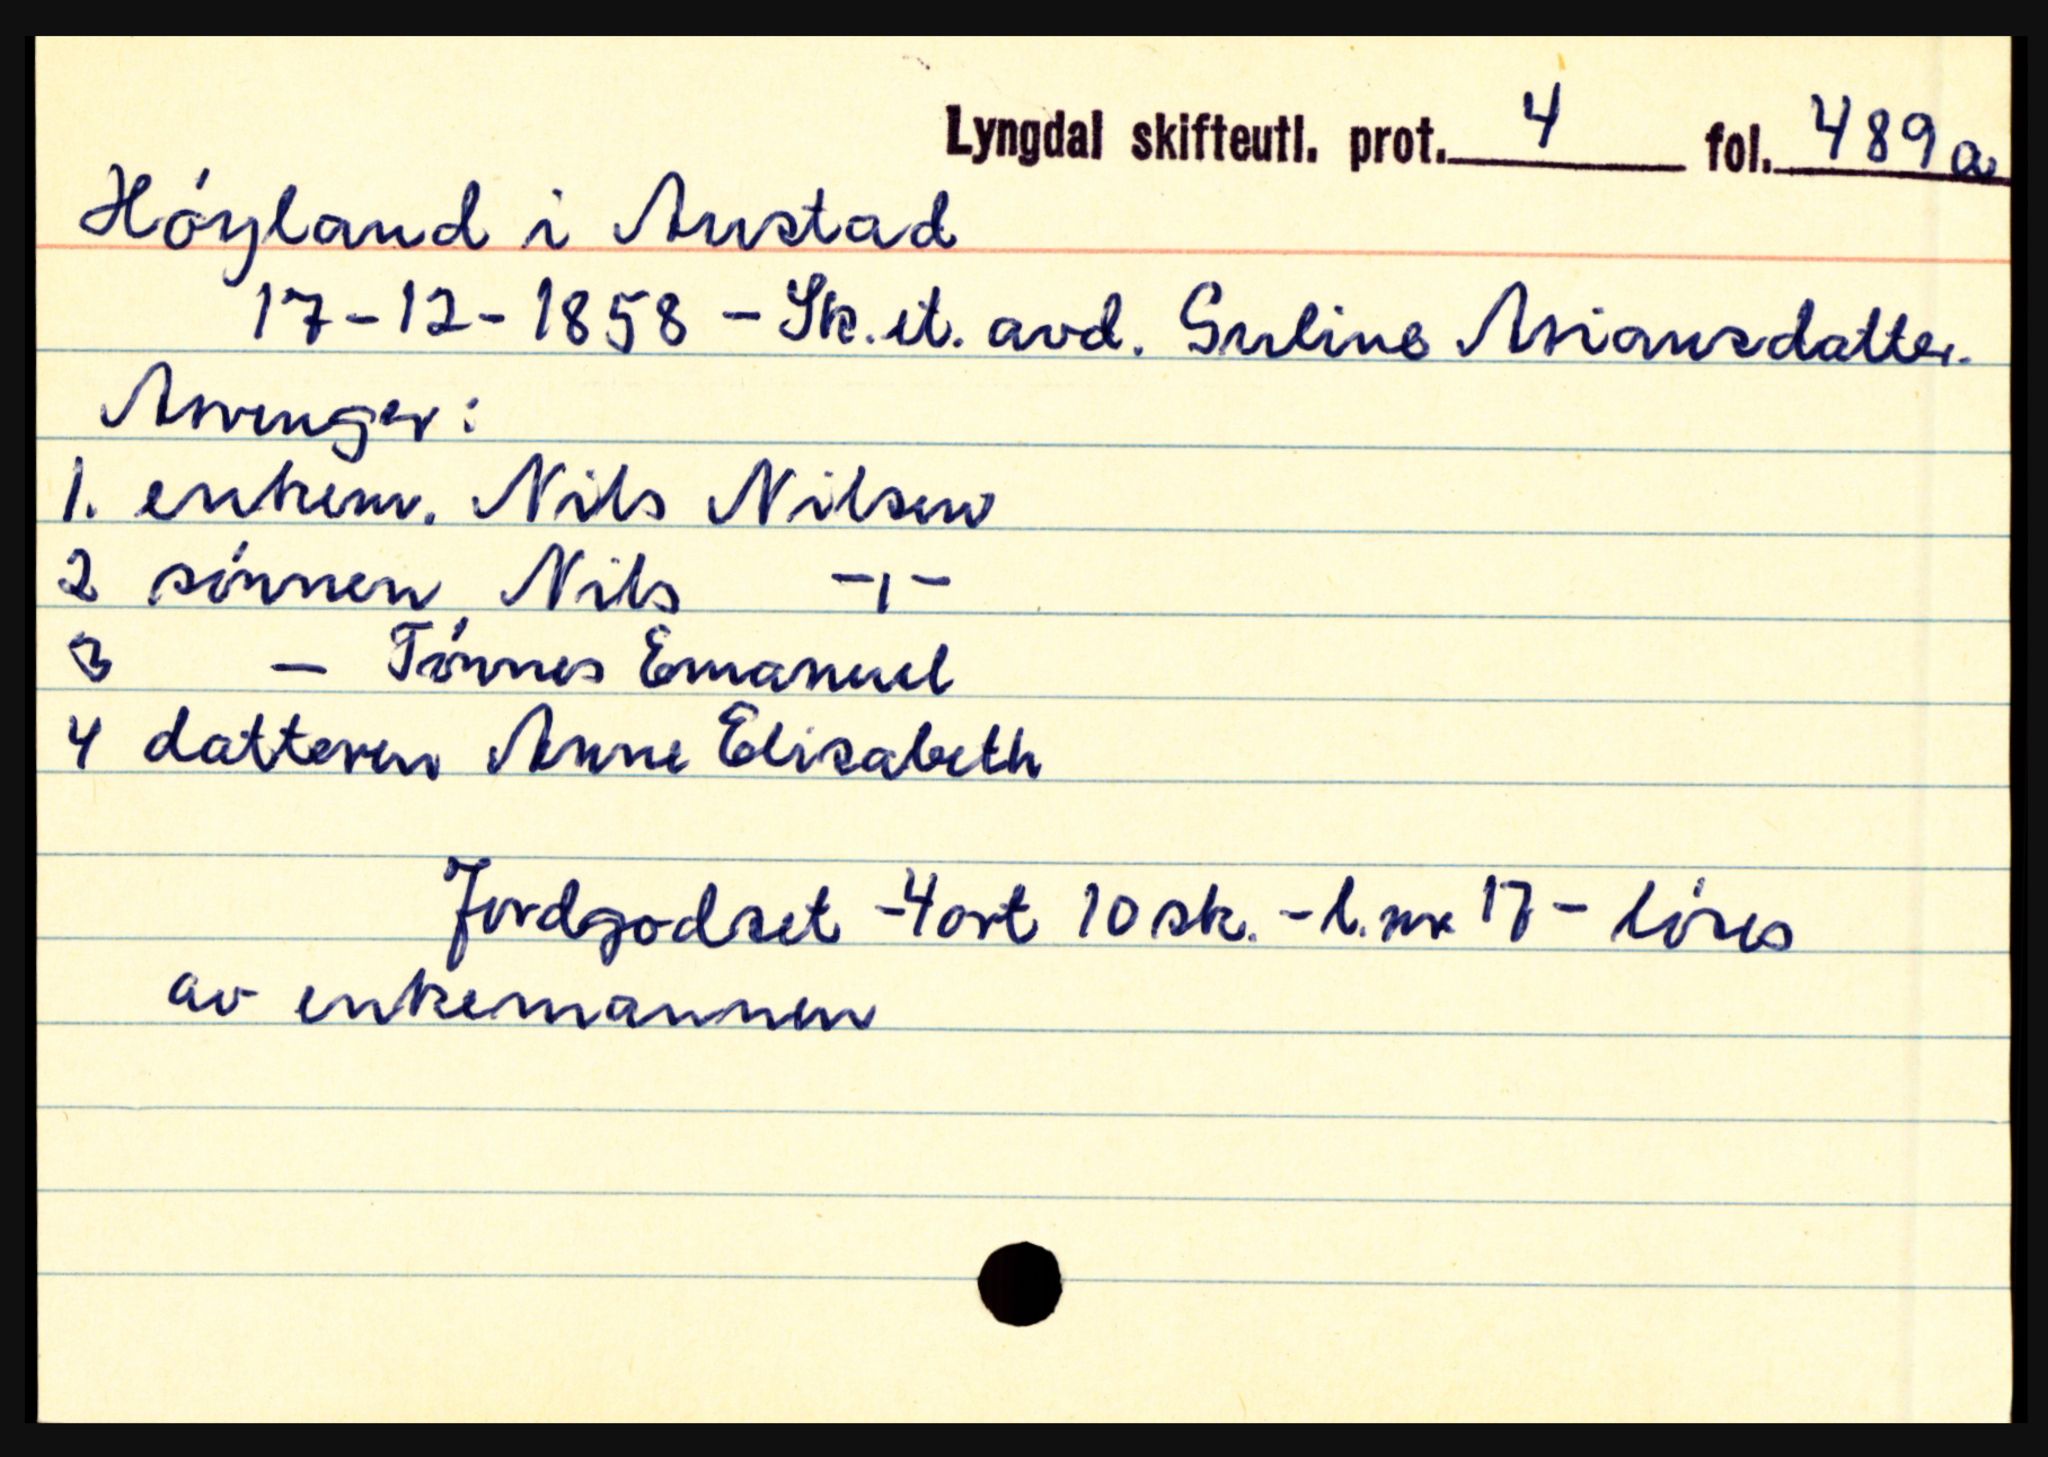 Lyngdal skifteutl. prot. 4 fol. 489 a
Höyland i Austad
17-12-1858 - Sk. et. avd. Guline Asiansdatter.
Arvinger:
1. enkem. Nils Nilsen
2 sönnen Nils -ı-
3 — Tönnes Emanuel
4 datteren Anne Elisabeth
Jordgodset -4 ort 10 sk. - l. nr 17 - löses
av enkemannen